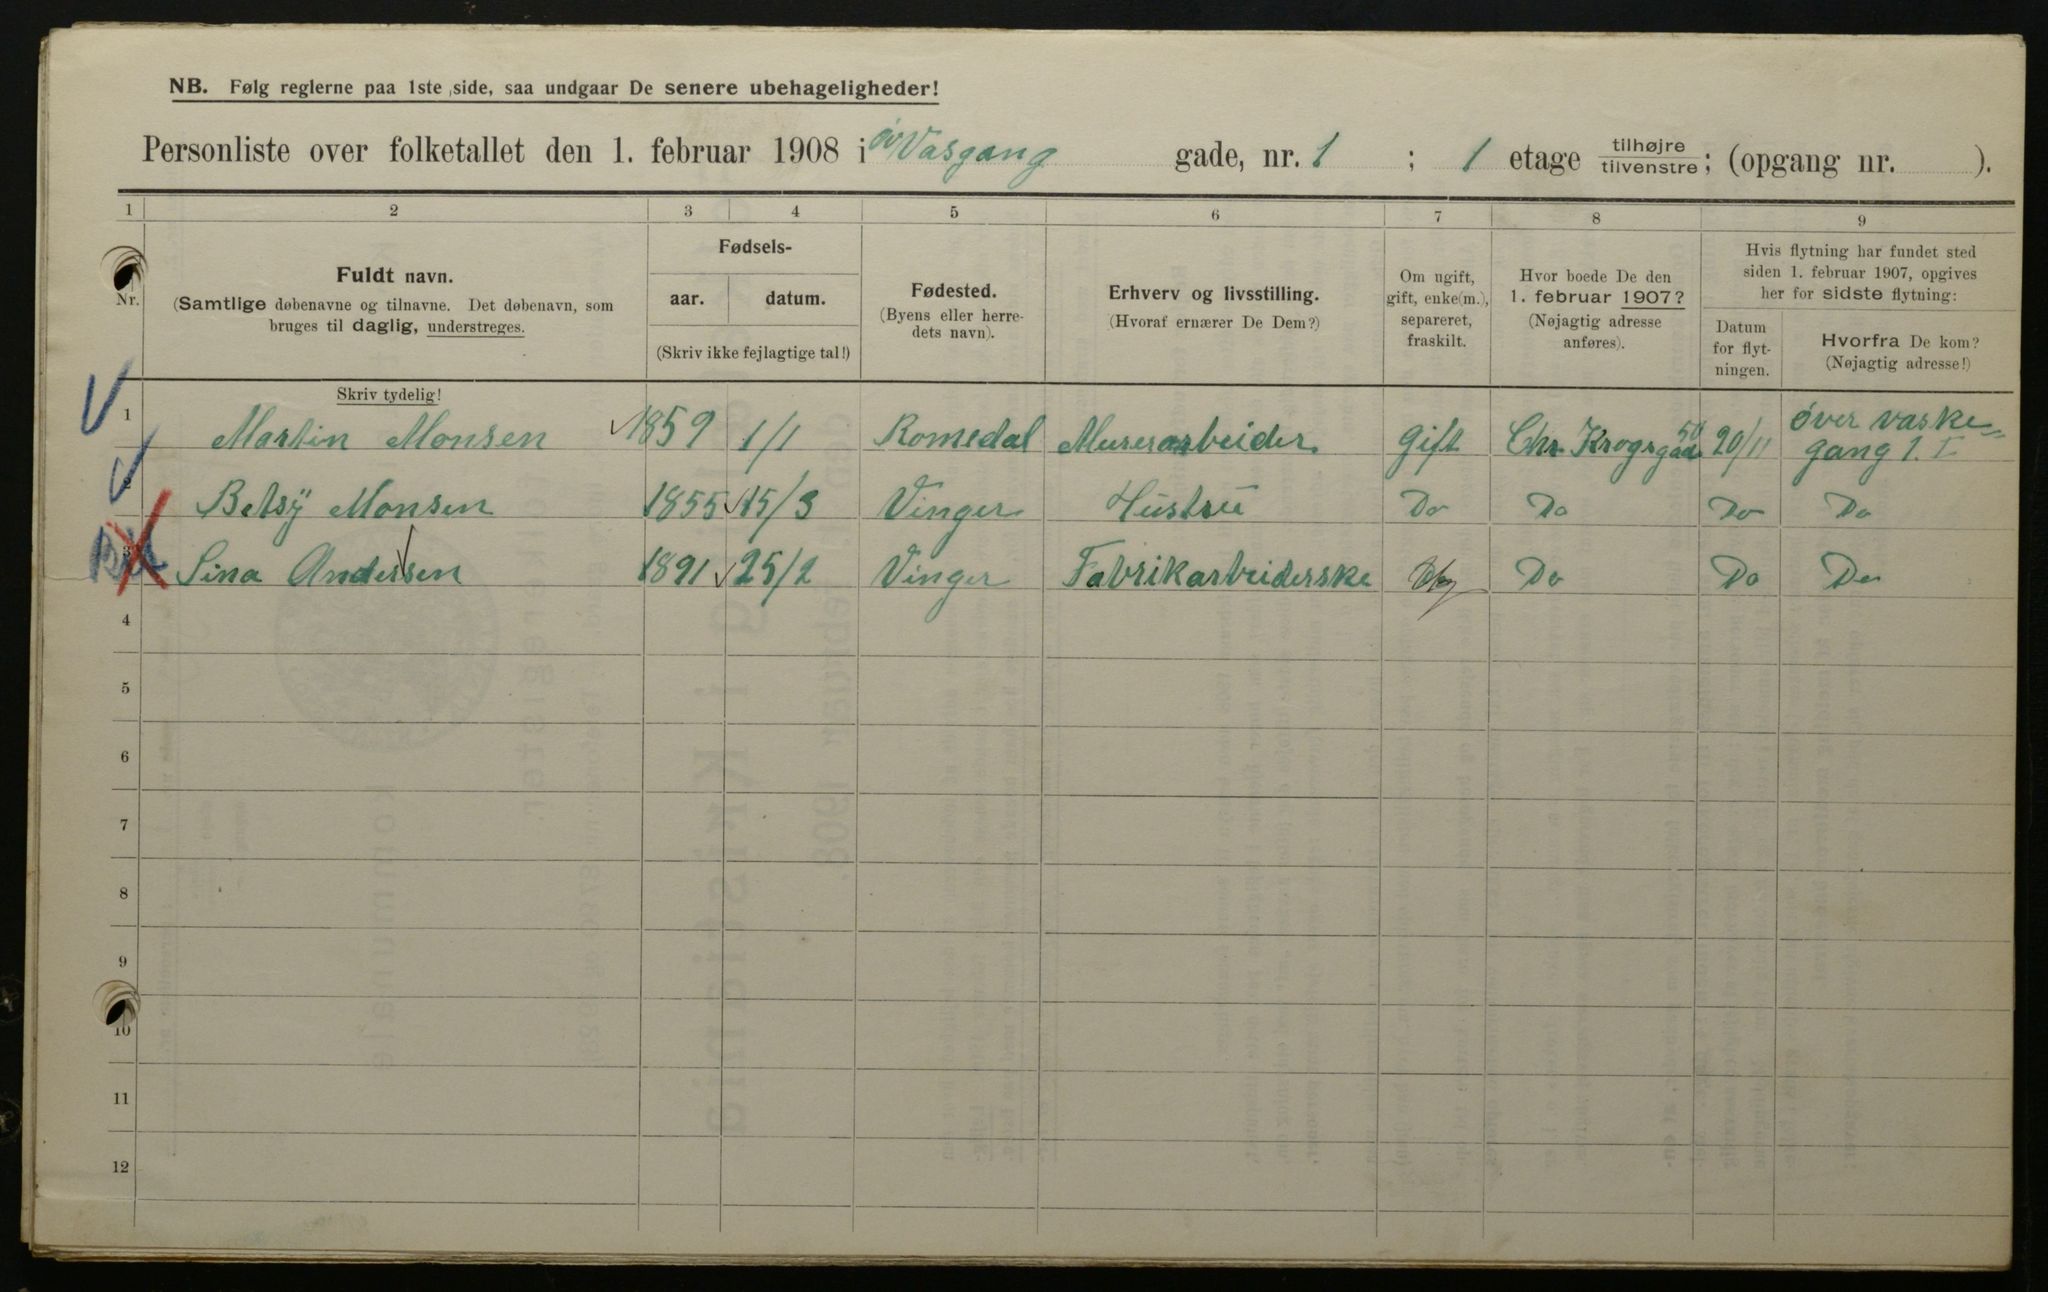 NB. Følg reglerne paa 1ste side, saa undgaar De senere ubehageligheder!
Personliste over folketallet den 1. februar 1908 i øv Vasgang gade, nr. 1 ; 1 etage tilhøjre/tilvenstre; (opgang nr. ).
1 2 3 4 5 6 7 8 9
Nr.
Fuldt navn.
(Samtlige døbenavne og tilnavne. Det døbenavn, som
bruges til daglig, understreges.
Skriv tydelig!
Fødsels-
aar. datum.
(Skriv ikke fejlagtige tal!)
Fødested.
(Byens eller herre-
dets navn).
Erhverv og livsstilling.
(Hvoraf ernærer De Dem?)
Om ugift,
gift, enke(m.),
separeret,
fraskilt.
Hvor boede De den
1. februar 1907?
(Nøjagtig adresse
anføres).
Hvis flytning har fundet sted
siden 1. februar 1907, opgives
her for sidste flytning:
Datum
for flyt-
ningen.
Hvorfra De kom?
(Nøjagtig adresse!)
1 Martin Monsen 1859 1/1 Romedal Murerarbeider Gift Chr Krogsgade 50 20/11 över vaske=
gang 1. I
2 Betsÿ Monsen 1855 15/3 Vinger Hustru Do Do Do Do
3 Sina Andersen 1891 25/2 Vinger Fabrikarbeiderske Ug Do Do Do
4
5
6
7
8
9
10
11
12